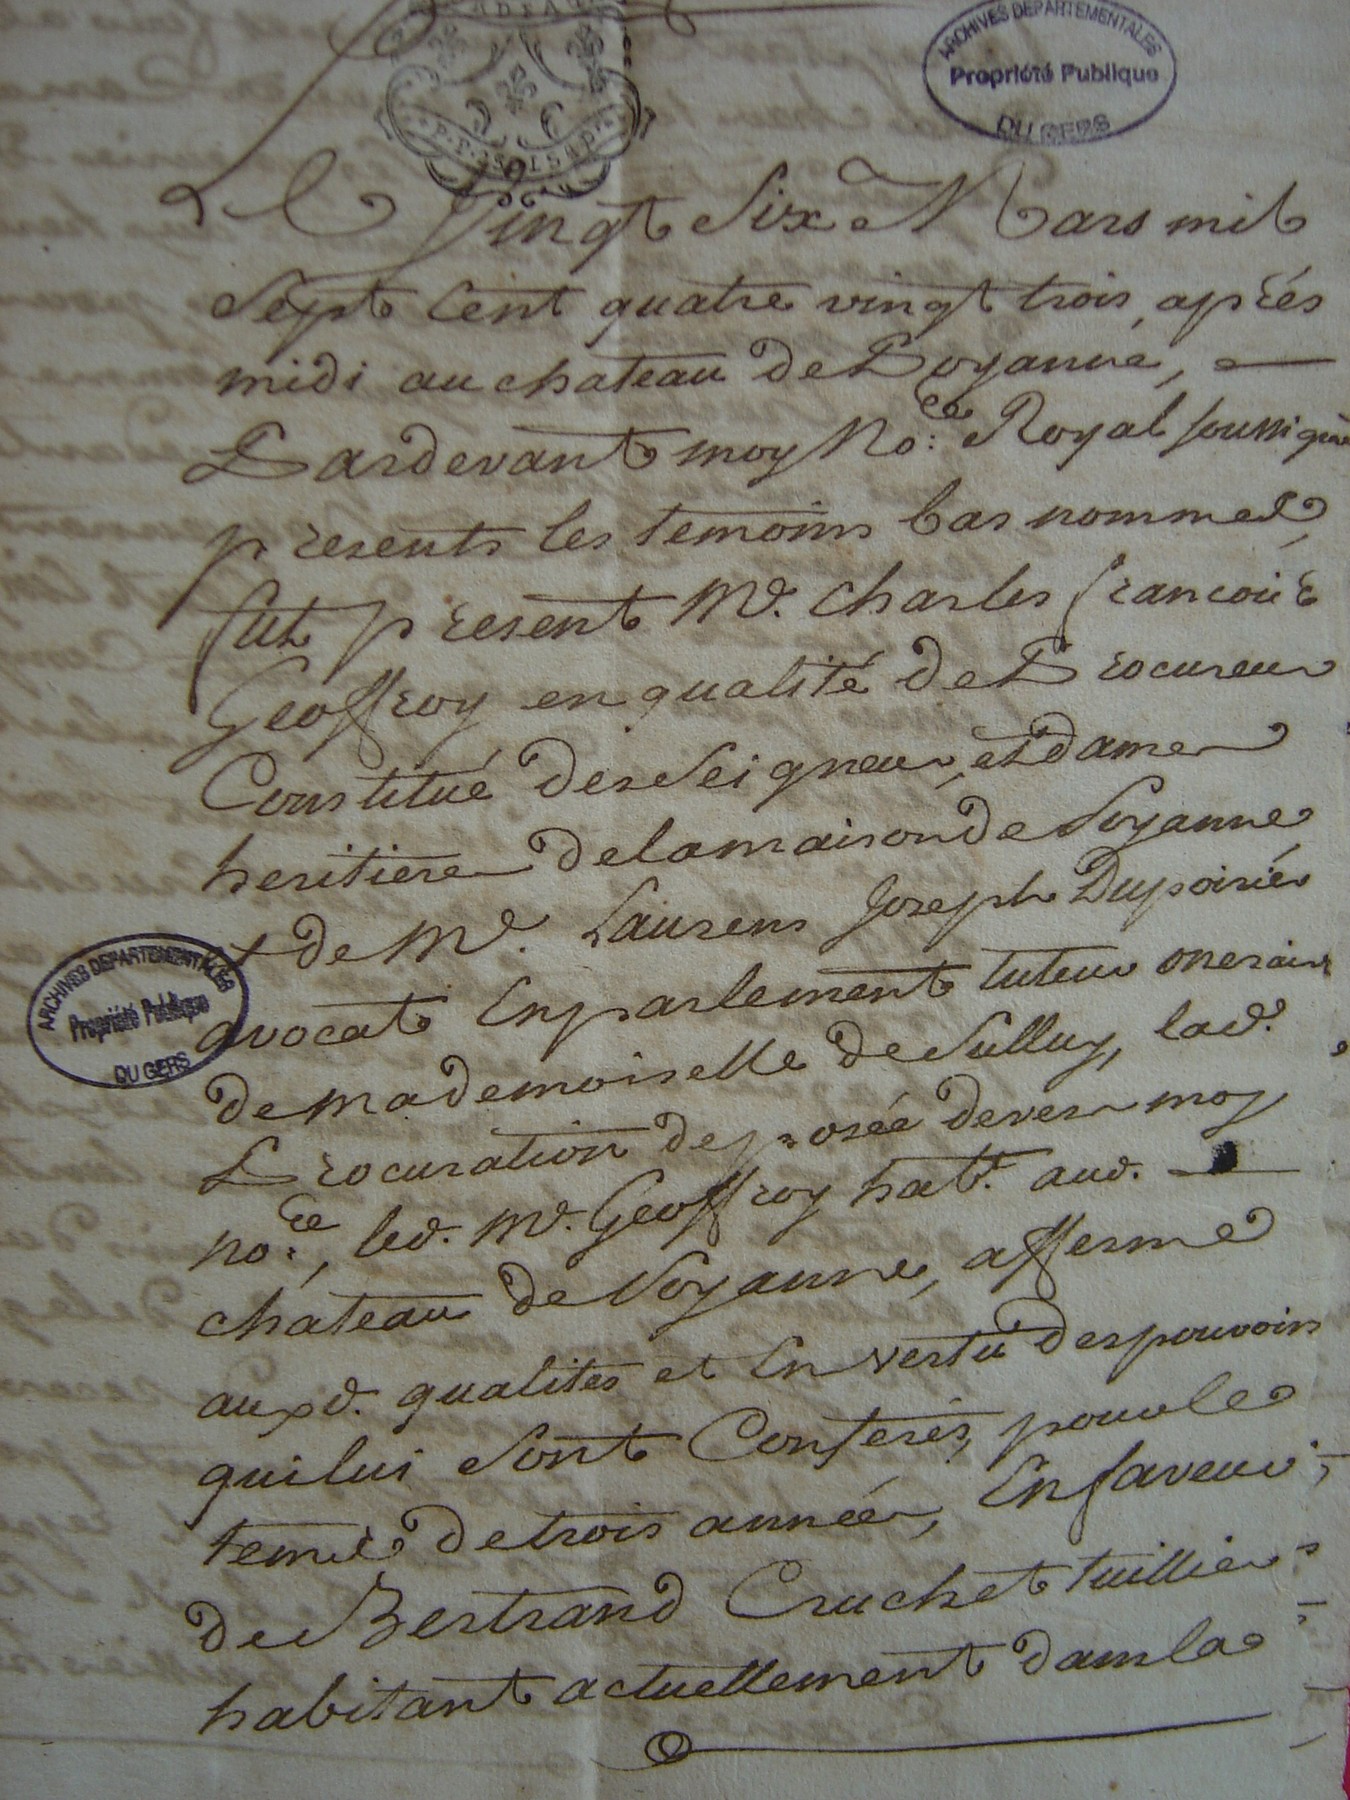 ARCHIVES DEPARTEMENTALES
Propriété Publique
DU GERS
Le Vingt Six Mars mil
Sept Cent quatre vingt trois, aprés
midi au chateau de Poyanné,
Pardevant moy No.re Royal soussigné
presents les temoins bas nommes,
fut present Me. Charles françois
Geoffroy en qualité de Procureur
Constitué des Seigneur, et dame
heritiere de la maison de Poyanne
et de Me. Laurens Joseph Dupoirié
avocat En parlement tuteur oneraire
de mademoiselle de Sully, lad.
Procuration deposée devers moy
no.re, led. Me. Geoffroy habt. aud.
chateau de Poyanne, afferme
auxd. qualites et En vertu des pouvoirs
qui lui sont Conferés, pour le
terme de trois années, En faveur
de Bertrand Cruchet tuillier
habitant actuellement dans la
ARCHIVES DEPARTEMENTALES
Propriété Publique
DU GERS